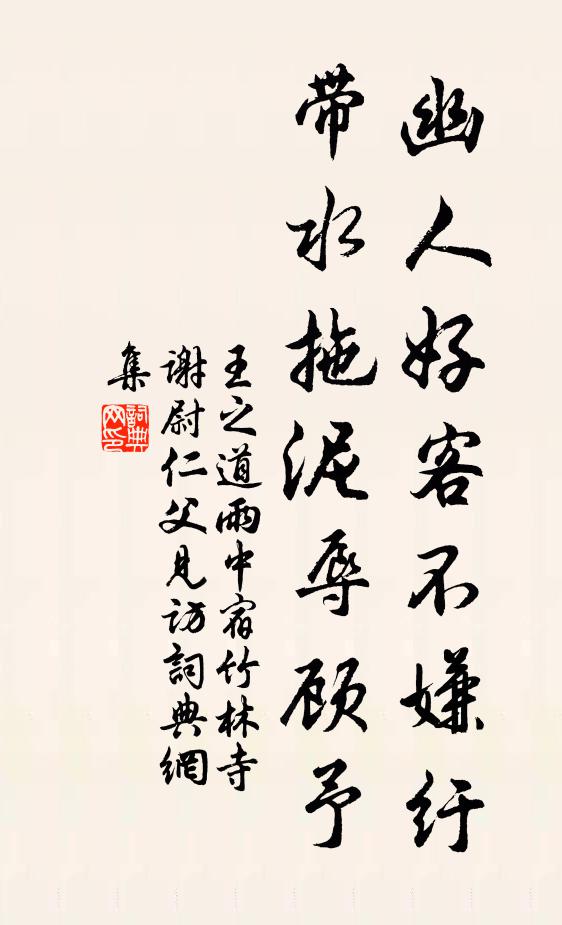 幽人好客不嫌纡
带水拖泥辱顾予
王之道雨中宿竹林寺
谢尉仁父见访詞典網
集
詞典网印